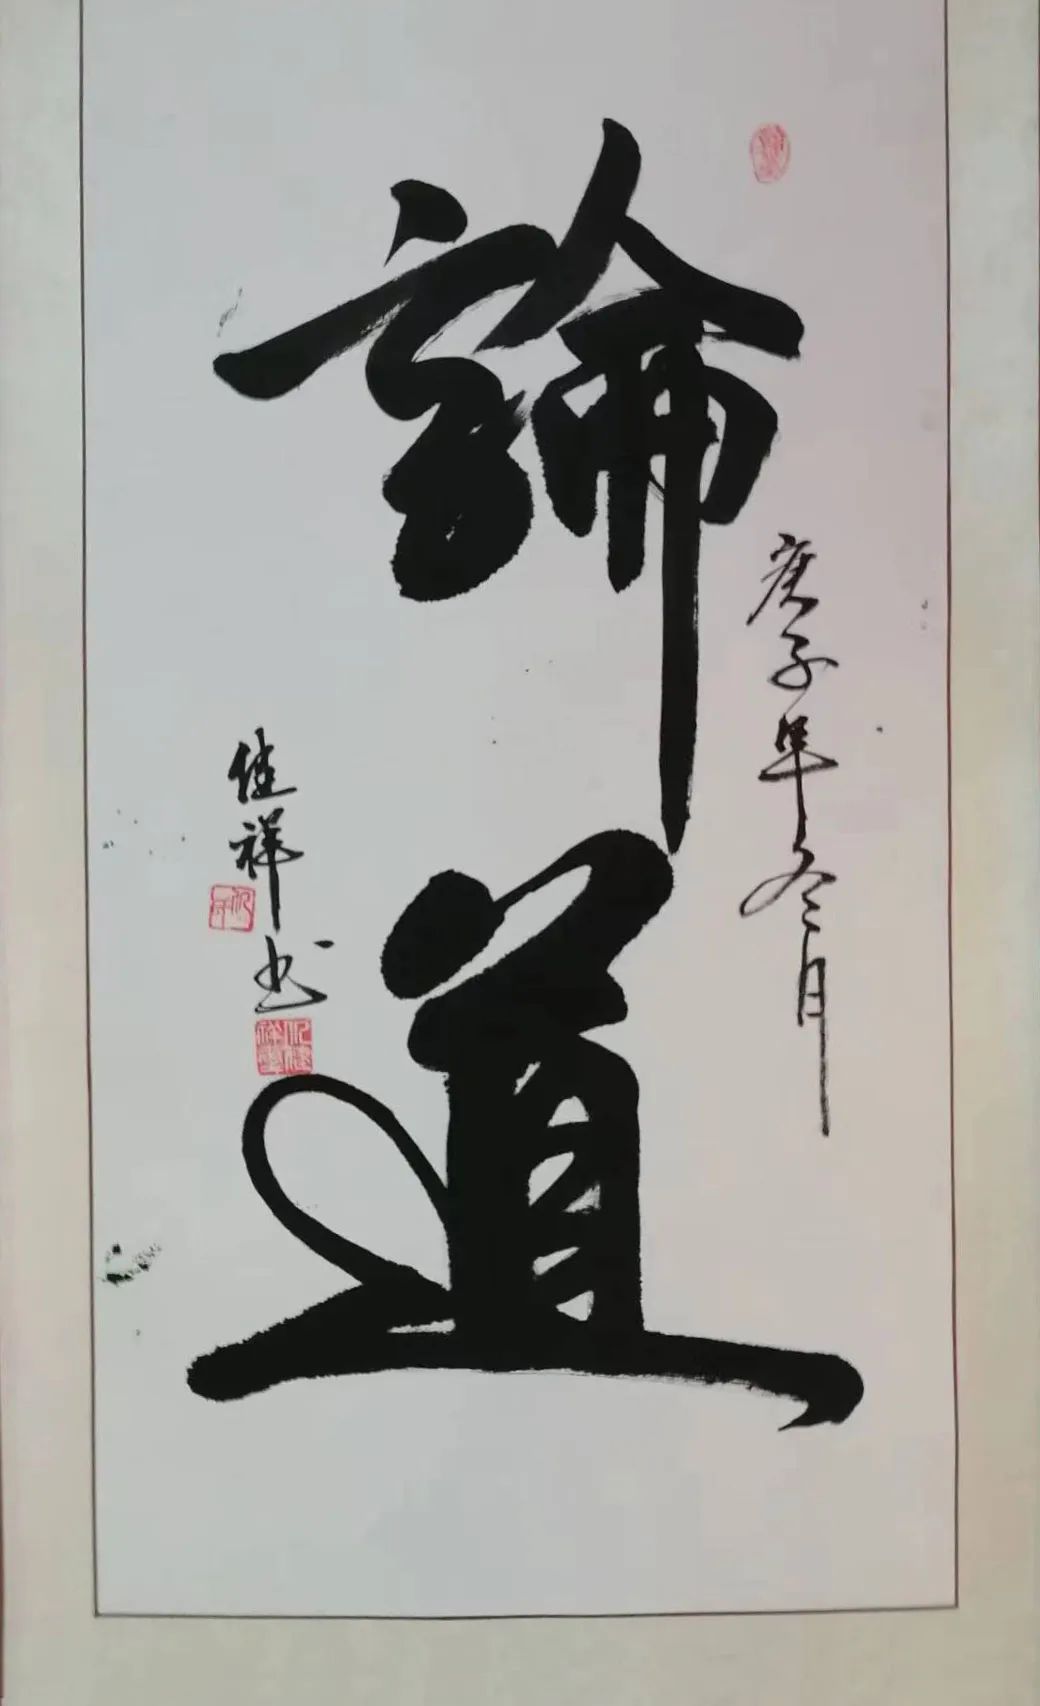 論道
庚子年冬月
佳祥书